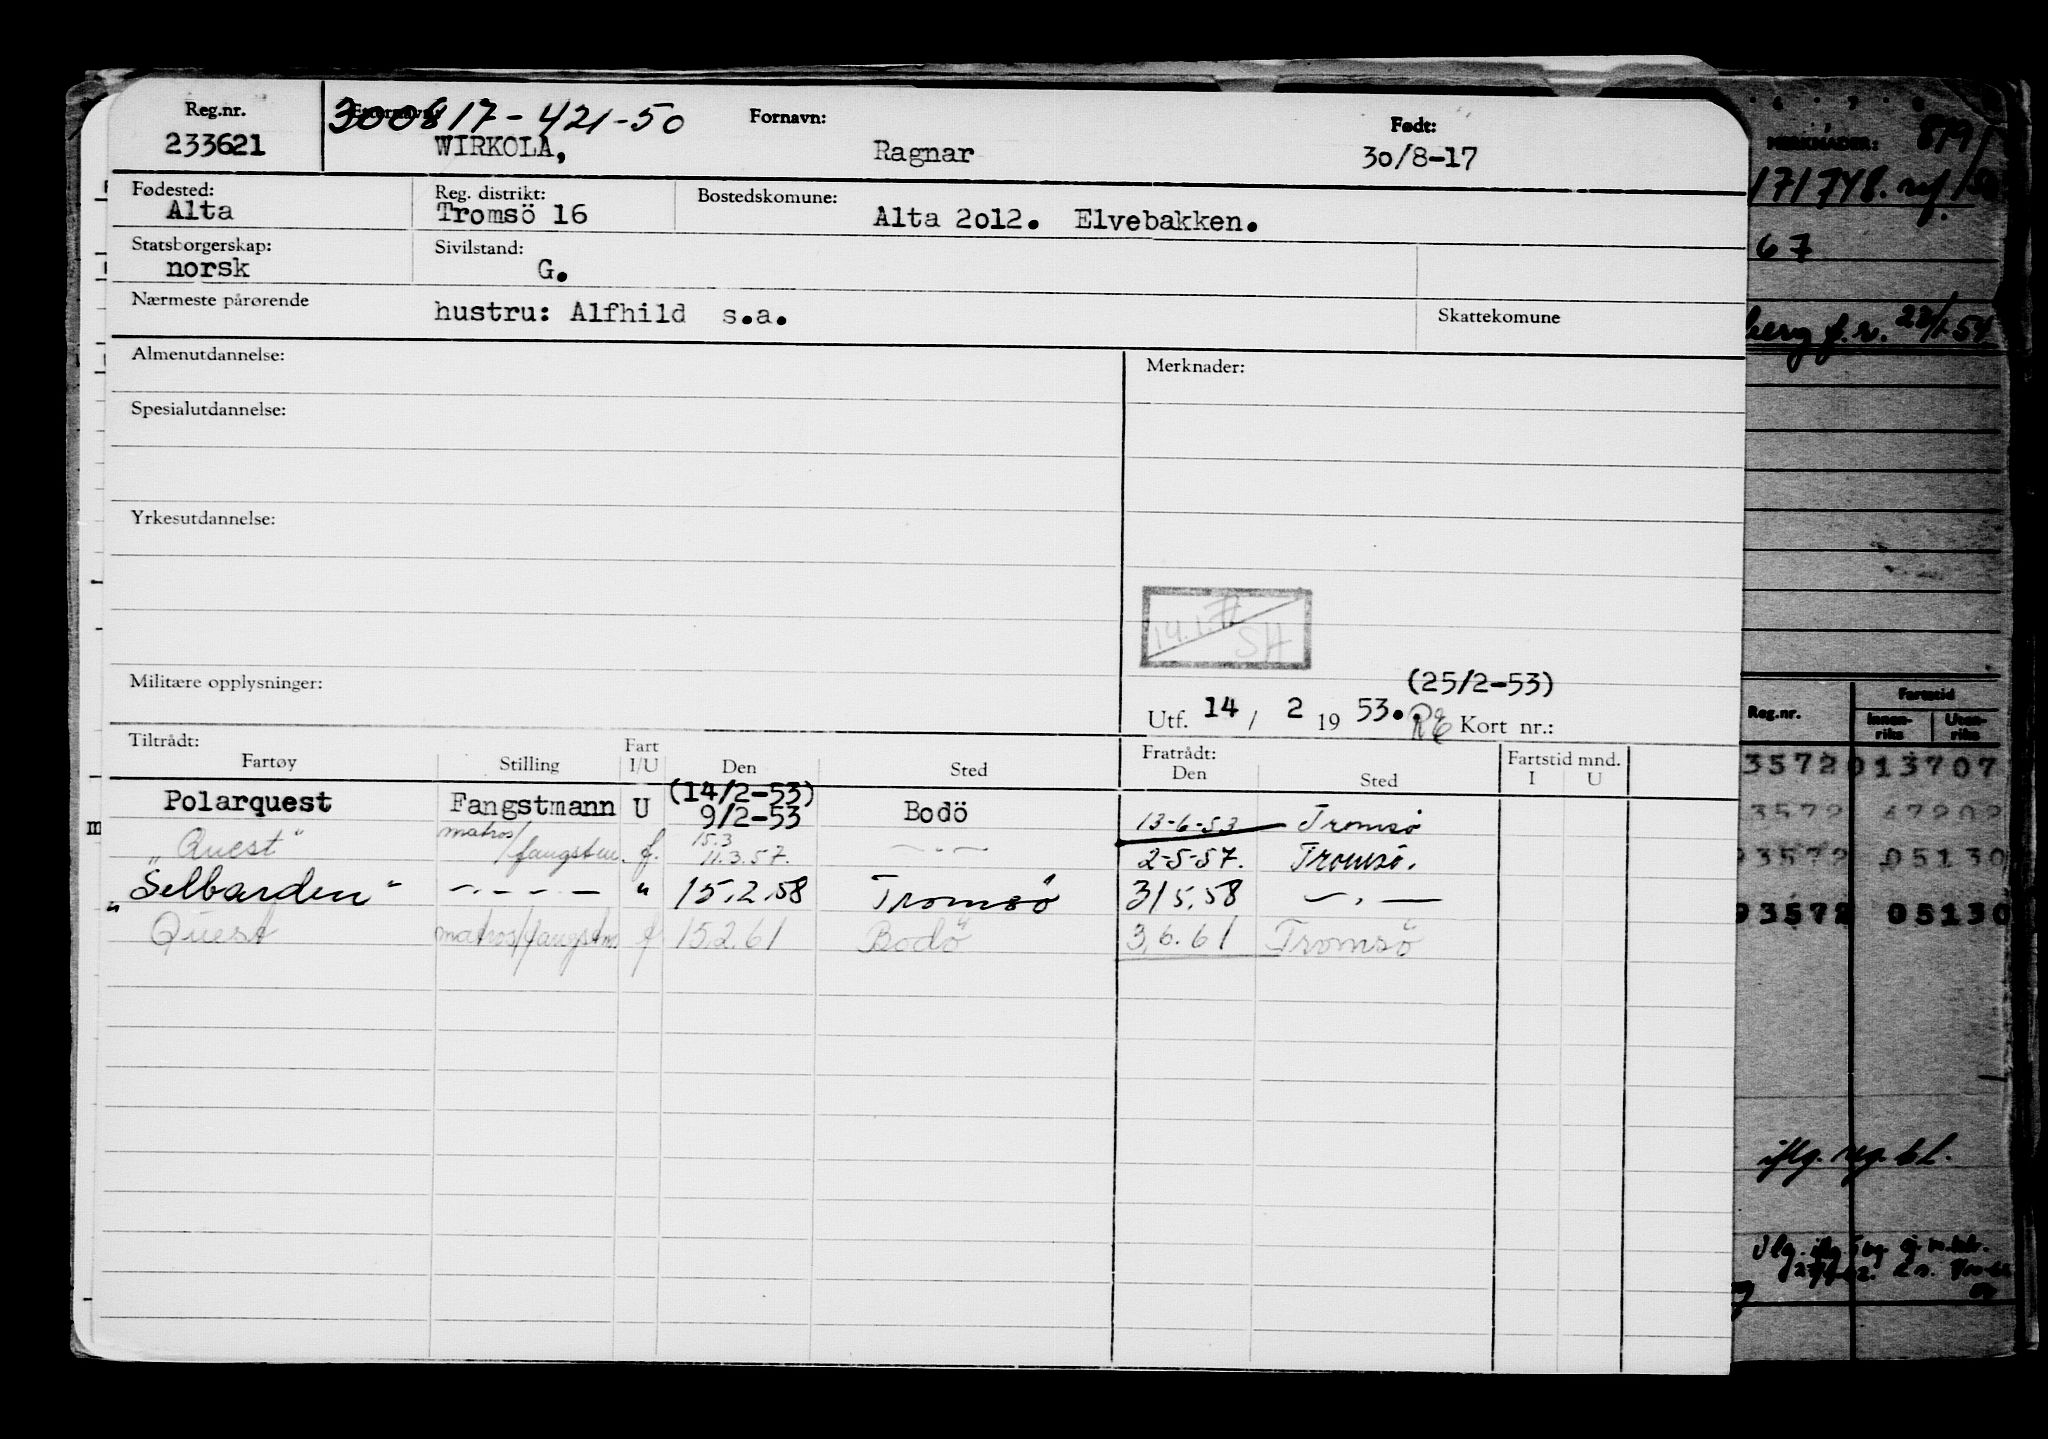 Reg.nr. Etternavn: 300817-421-50 Fornavn: Født:
233621 WIRKOLA, Ragnar 30/8-17
Fødested: Reg. distrikt: Bostedskomune:
Alta Tromsö 16 Alta 2o12. Elvebakken.
Statsborgerskap: Sivilstand:
norsk G.
Nærmeste pårørende hustru: Alfhild s.a. Skattekomune
Almenutdannelse: Merknader:
Spesialutdannelse:
Yrkesutdannelse:
SH
Militære opplysninger: (25/2-53)
Utf. 14 / 2 19 53. Kort nr.:
Tiltrådt: Fratrådt:
Fartøy Stilling Fart I/U Den Sted Den Sted Fartstid mnd. I U
Polarquest Fangstmann U (14/2-53) 9/2-53 Bodö 13-6-53 Tromsø
"Quest" matros/fangstm. f. 15.3 11.3.57. — " — 2-5-57. Tromsø.
"Selbarden" —.—.—.— " 15.2.58 Tromsö 31 5.58 —.—
Quest matros/fangstm. f 15.2.61 Bodö 3.6.61 Tromsö
MERKNADER: 879
171748.
67
berg f.v. 22/1-54
Reg.nr. Fartstid
Innen-riks Uten-riks
35720 13707
3572 47202
93572 05130
93572 05130
iflg. reg. bl.